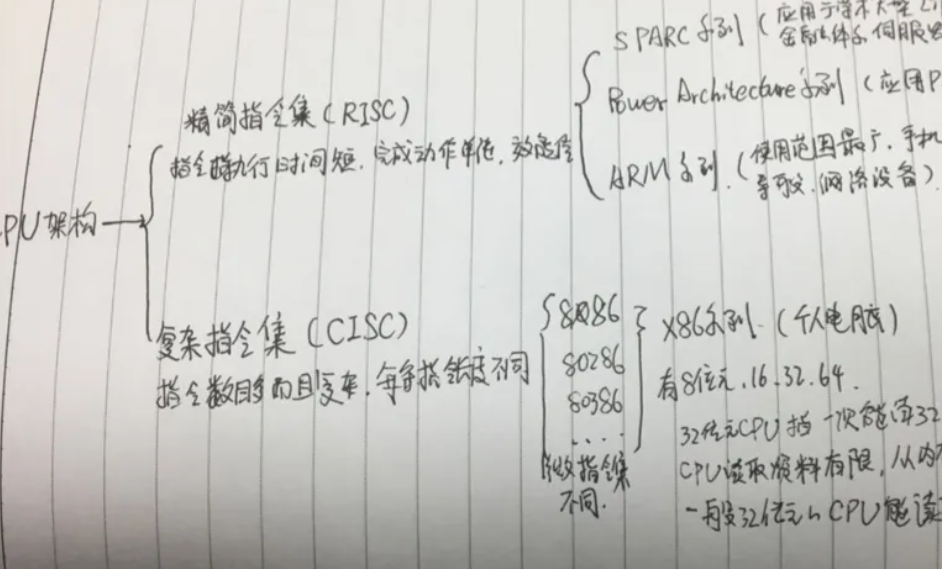 PU架构
精简指令集(RISC)
指令执行时间短,完成动作单纯,效能佳
SPARC系列(应用于学术大型
金融体系伺服器
Power Architecture系列(应用P
ARM系列.(使用范围最广,手机
导航,网络设备)
复杂指令集(CISC)
指令数目多而且复杂,每条指令长度不同
8086
80286
80386
....
指令集
不同.
X86系列.(个人电脑)
有8位元.16.32.64.
32位元CPU指一次能读32
CPU读取资料有限,从内
一般32位元的CPU能读